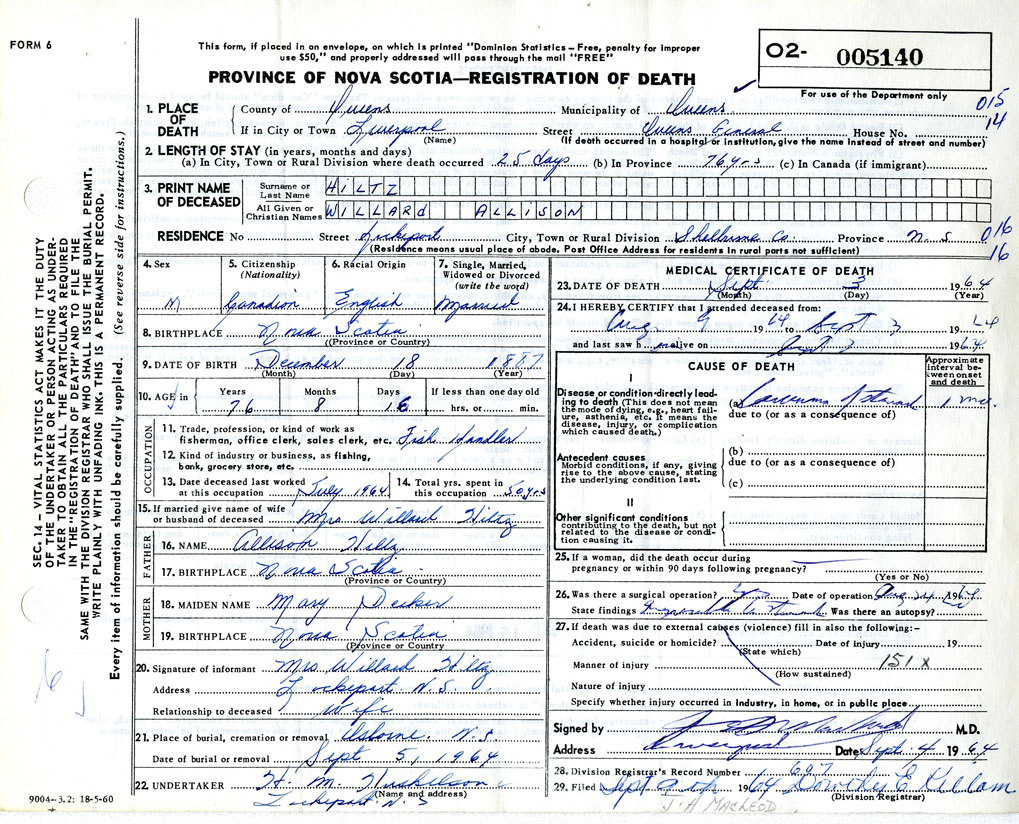 FORM 6
This form, if placed in an envelope, on which is printed "Dominion Statistics – Free, penalty for improper
use $50," and properly addressed will pass through the mail "FREE"
PROVINCE OF NOVA SCOTIA—REGISTRATION OF DEATH
O2- 005140
For use of the Department only
015
14
1. PLACE OF DEATH
County of Queens Municipality of Queens
If in City or Town Liverpool Street Queens General House No.
(Name) (If death occurred in a hospital or institution, give the name instead of street and number)
2. LENGTH OF STAY (in years, months and days)
(a) In City, Town or Rural Division where death occurred 25 days (b) In Province 76 yrs (c) In Canada (if immigrant)
3. PRINT NAME OF DECEASED
Surname or Last Name HILTZ
All Given or Christian Names WILLARd ALLISON
RESIDENCE No Street Lockeport City, Town or Rural Division Shelburne Co. Province N.S
016
16
(Residence means usual place of abode. Post Office Address for residents in rural parts not sufficient)
4. Sex M
5. Citizenship (Nationality) Canadian
6. Racial Origin English
7. Single, Married, Widowed or Divorced (write the word) Married
8. BIRTHPLACE Nova Scotia
(Province or Country)
9. DATE OF BIRTH December 18 1887
(Month) (Day) (Year)
10. AGE in Years 76 Months 8 Days 16 If less than one day old hrs. or min.
OCCUPATION
11. Trade, profession, or kind of work as
fisherman, office clerk, sales clerk, etc. Fish Handler
12. Kind of industry or business, as fishing,
bank, grocery store, etc.
13. Date deceased last worked at this occupation July 1964
14. Total yrs. spent in this occupation 50 yrs
15. If married give name of wife
or husband of deceased Mrs Willard Hiltz
FATHER
16. NAME Allison Hiltz
17. BIRTHPLACE Nova Scotia
(Province or Country)
MOTHER
18. MAIDEN NAME Mary Decker
19. BIRTHPLACE Nova Scotia
(Province or Country
20. Signature of informant Mrs Willard Hiltz
Address Lockeport N.S.
Relationship to deceased Wife
21. Place of burial, cremation or removal Osborne N.S
Date of burial or removal Sept 5, 1964
22. UNDERTAKER H. M.
(Name and address)
Lockeport N.S
9004—3.2: 18-5-60
MEDICAL CERTIFICATE OF DEATH
23. DATE OF DEATH Sept 3 1964
(Month) (Day) (Year)
24. I HEREBY CERTIFY that I attended deceased from:
Aug 9 1964 to Sept 3 1964
and last saw h m alive on Sept 3 1964
CAUSE OF DEATH
Approximate interval between onset and death
I
Disease or condition directly leading to death (This does not mean the mode of dying, e.g., heart failure, asthenia, etc. It means the disease, injury, or complication which caused death.)
(a)
due to (or as a consequence of)
Antecedent causes
Morbid conditions, if any, giving rise to the above cause, stating the underlying condition last.
(b)
due to (or as a consequence of)
(c)
II
Other significant conditions
contributing to the death, but not related to the disease or condition causing it.
25. If a woman, did the death occur during
pregnancy or within 90 days following pregnancy?
(Yes or No)
26. Was there a surgical operation? Date of operation
State findings Was there an autopsy?
27. If death was due to external causes (violence) fill in also the following:-
Accident, suicide or homicide? Date of injury 19
(State which)
Manner of injury 151 X
(How sustained)
Nature of injury
Specify whether injury occurred in Industry, in home, or in public place
Signed by M.D.
Address Liverpool Date Sept. 4 1964
28. Division Registrar's Record Number 607
29. Filed Sept 1964 Dorothy E Killam
(Division Registrar)
J. A. MACLEOD
SEC. 14 – VITAL STATISTICS ACT MAKES IT THE DUTY
OF THE UNDERTAKER OR PERSON ACTING AS UNDER-
TAKER TO OBTAIN ALL THE PARTICULARS REQUIRED
IN THE "REGISTRATION OF DEATH" AND TO FILE THE
SAME WITH THE DIVISION REGISTRAR WHO SHALL ISSUE THE BURIAL PERMIT.
WRITE PLAINLY WITH UNFADING INK. THIS IS A PERMANENT RECORD.
Every item of information should be carefully supplied. (See reverse side for instructions.)
6